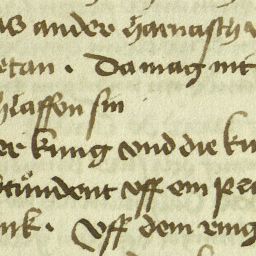 as ander harnasch
etan. Da mag nit
hlaffen sin
er kung vnd die ku
stůndent vff ein pra
nk. Vff dem ring